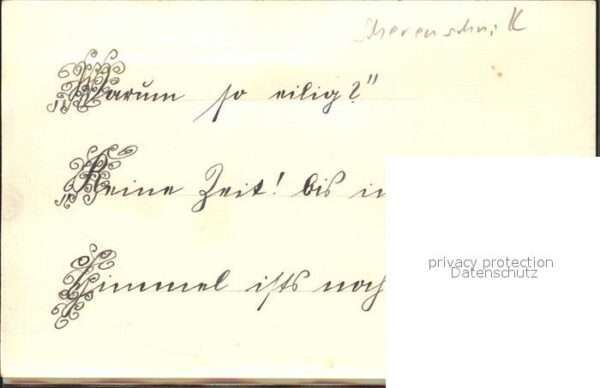 Scherenschnitt
„Warum so eilig?"
„Keine Zeit! bis in
Himmel ists noch
privacy protection
Datenschutz